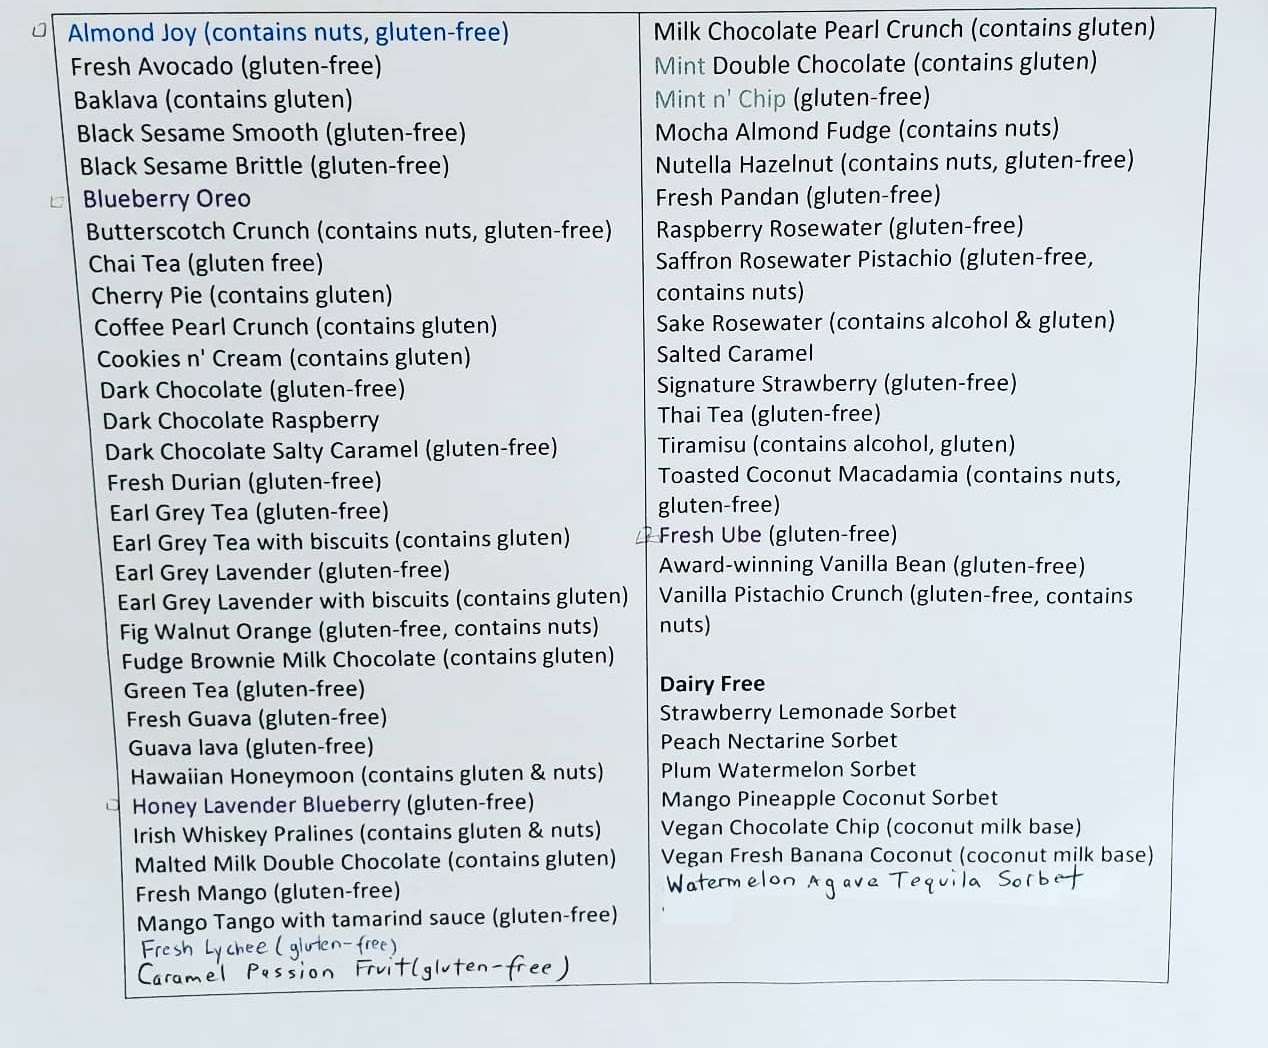 Almond Joy (contains nuts, gluten-free)
Fresh Avocado (gluten-free)
Baklava (contains gluten)
Black Sesame Smooth (gluten-free)
Black Sesame Brittle (gluten-free)
Blueberry Oreo
Butterscotch Crunch (contains nuts, gluten-free)
Chai Tea (gluten free)
Cherry Pie (contains gluten)
Coffee Pearl Crunch (contains gluten)
Cookies n' Cream (contains gluten)
Dark Chocolate (gluten-free)
Dark Chocolate Raspberry
Dark Chocolate Salty Caramel (gluten-free)
Fresh Durian (gluten-free)
Earl Grey Tea (gluten-free)
Earl Grey Tea with biscuits (contains gluten)
Earl Grey Lavender (gluten-free)
Earl Grey Lavender with biscuits (contains gluten)
Fig Walnut Orange (gluten-free, contains nuts)
Fudge Brownie Milk Chocolate (contains gluten)
Green Tea (gluten-free)
Fresh Guava (gluten-free)
Guava lava (gluten-free)
Hawaiian Honeymoon (contains gluten & nuts)
Honey Lavender Blueberry (gluten-free)
Irish Whiskey Pralines (contains gluten & nuts)
Malted Milk Double Chocolate (contains gluten)
Fresh Mango (gluten-free)
Mango Tango with tamarind sauce (gluten-free)
Fresh Lychee (gluten-free)
Caramel Passion Fruit (gluten-free)
Milk Chocolate Pearl Crunch (contains gluten)
Mint Double Chocolate (contains gluten)
Mint n' Chip (gluten-free)
Mocha Almond Fudge (contains nuts)
Nutella Hazelnut (contains nuts, gluten-free)
Fresh Pandan (gluten-free)
Raspberry Rosewater (gluten-free)
Saffron Rosewater Pistachio (gluten-free,
contains nuts)
Sake Rosewater (contains alcohol & gluten)
Salted Caramel
Signature Strawberry (gluten-free)
Thai Tea (gluten-free)
Tiramisu (contains alcohol, gluten)
Toasted Coconut Macadamia (contains nuts,
gluten-free)
Fresh Ube (gluten-free)
Award-winning Vanilla Bean (gluten-free)
Vanilla Pistachio Crunch (gluten-free, contains
nuts)
Dairy Free
Strawberry Lemonade Sorbet
Peach Nectarine Sorbet
Plum Watermelon Sorbet
Mango Pineapple Coconut Sorbet
Vegan Chocolate Chip (coconut milk base)
Vegan Fresh Banana Coconut (coconut milk base)
Watermelon Agave Tequila Sorbet